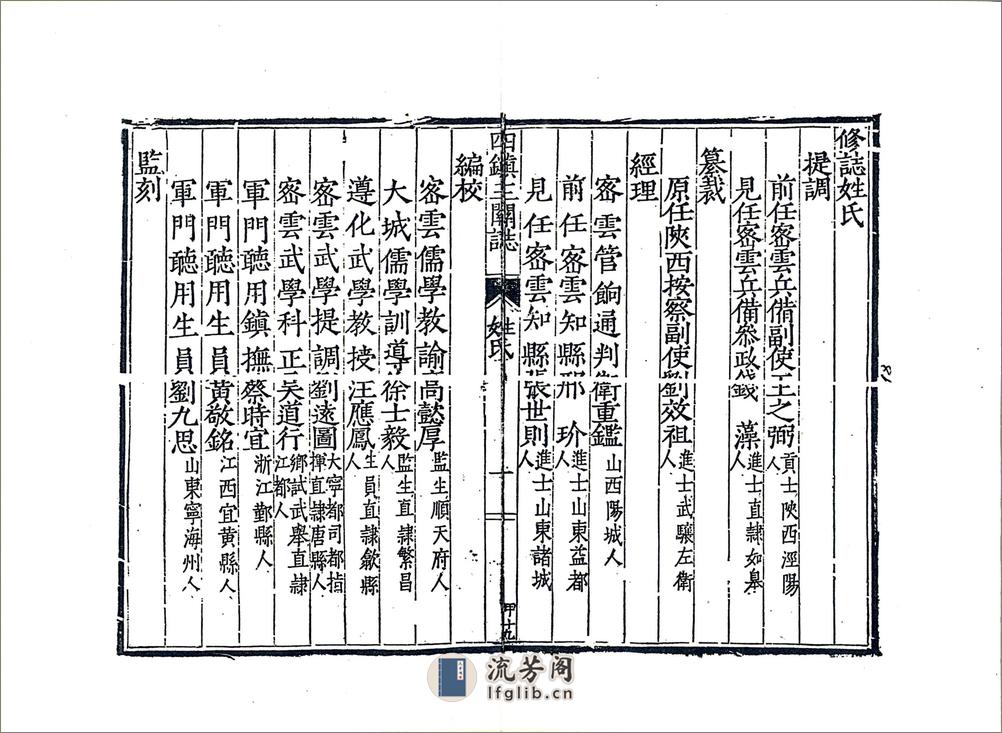 修誌姓氏
提調
前任密雲兵備副使王之弼貢士陝西涇陽人
見任密雲兵備參政錢藻進士直隸如臯人
纂裁
原任陝西按察副使劉效祖進士武驤左衛人
經理
密雲管餉通判衛重鑑山西陽城人
前任密雲知縣邢玠進士山東益都人
見任密雲知縣張世則進士山東諸城人
四鎮三關誌
姓氏
一
甲十九
編校
密雲儒學教諭高懿厚監生順天府人
大城儒學訓導徐士毅監生直隸繁昌人
遵化武學教授汪應鳳生員直隸歙縣人
密雲武學提調劉遠圖大寧都司都指揮直隸唐縣人
密雲武學科正吳道行鄉試武舉直隸江都人
軍門聽用鎮撫蔡時宜浙江鄞縣人
軍門聽用生員黃敬銘江西宜黃縣人
軍門聽用生員劉九思山東寧海州人
監刻
流芳阁
lfglib.cn